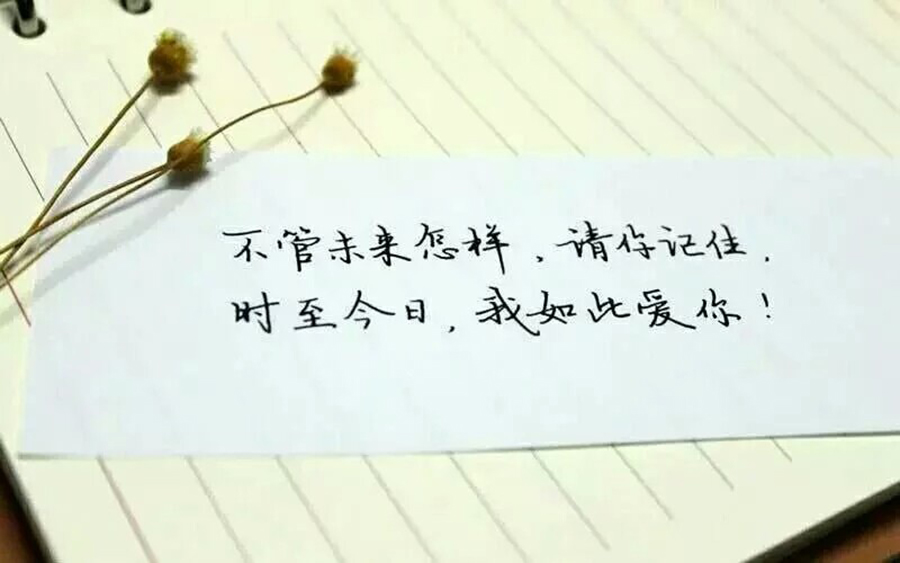 不管未来怎样,请你记住,
时至今日,我如此爱你!